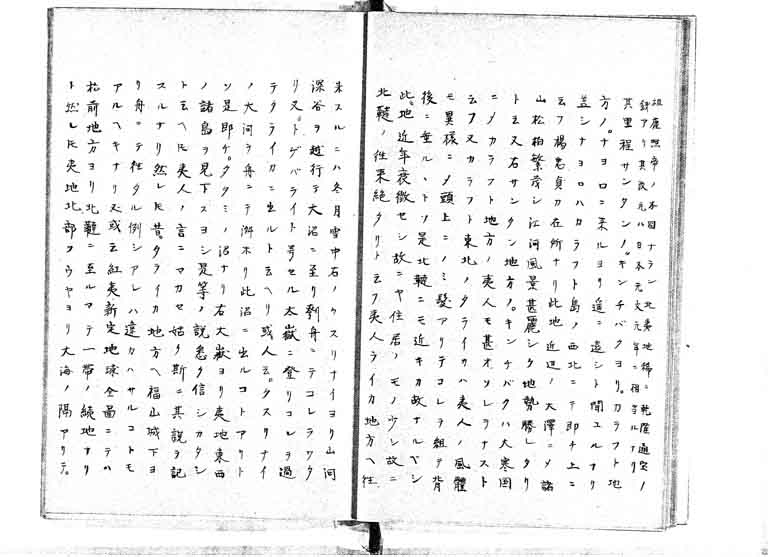 祖鹿煕帝ノ本国ナラン北夷地稀ニ乾隆通宝ノ
銭アリ其改元ハ日本元文元年ニ相当ルナリ
其里程サンタンノ。キンチバクヨリ。カラフト地
方ノ。ナヨロニ来ルヨリ遥ニ遠シト聞エルナリ
盖シナヨロハカラフト島ノ西北ニテ即チ上ニ
云フ楊忠貞カ在所ナリ此地近辺ノ大澤ニメ諸
山松柏繁茂シ江河風景甚麗シク地勢勝レタリ
トモ又右サンタン地方ノ。キンチバクハ大寒国
ニメカラフト地方ノ夷人モ甚オソレリナスト
云フ又カラフト東北ノタライカハ夷人ノ風體
モ異様ニメ頭上ニノミ髪アリテコレヲ組テ背
後ニ垂ル、トソ是北韃ニモ近キカ故ナルベシ
此地近年夜微セシ故ニヤ住居ノモノ少シ故ニ
北韃ノ往来絶タリト云フ夷人ライカ地方ヘ往
来スルニハ冬月雪中右ノクスリナイヨリ山河
深谷ヲ越行テ大沼ニ至リ刳舟ニテコレヲワタ
リ又。トゲバライト号セル太嶽ニ登リコレヲ過
テタライカニ出ルト云ヘリ或人云。クスリナイ
ノ大河ヲ舟ニテ泝ホリ此沼ニ出ルコトアリ
ソ是即チ。タクミノ沼ナリ右大嶽ヨリ夷地東西
ノ諸島ヲ見下スヨシ是等ノ説悉ク信シカタシ
ト云ヘ𪜈夷人ノ言ニマカセ姑ク斯ニ其説ヲ記
スルナリ然レ𪜈昔タライカ地方ヘ福山城下ヨ
リ舟ニテ往タル例シアレハ違カハサルコトモ
アルヘキナリ又或云紅夷新定地球全圖ニテハ
松前地方ヨリ北韃ニ至ルマテ一帯ノ続地ナリ
ト然レ𪜈夷地北部ソウヤヨリ大海ノ隔アリテ。